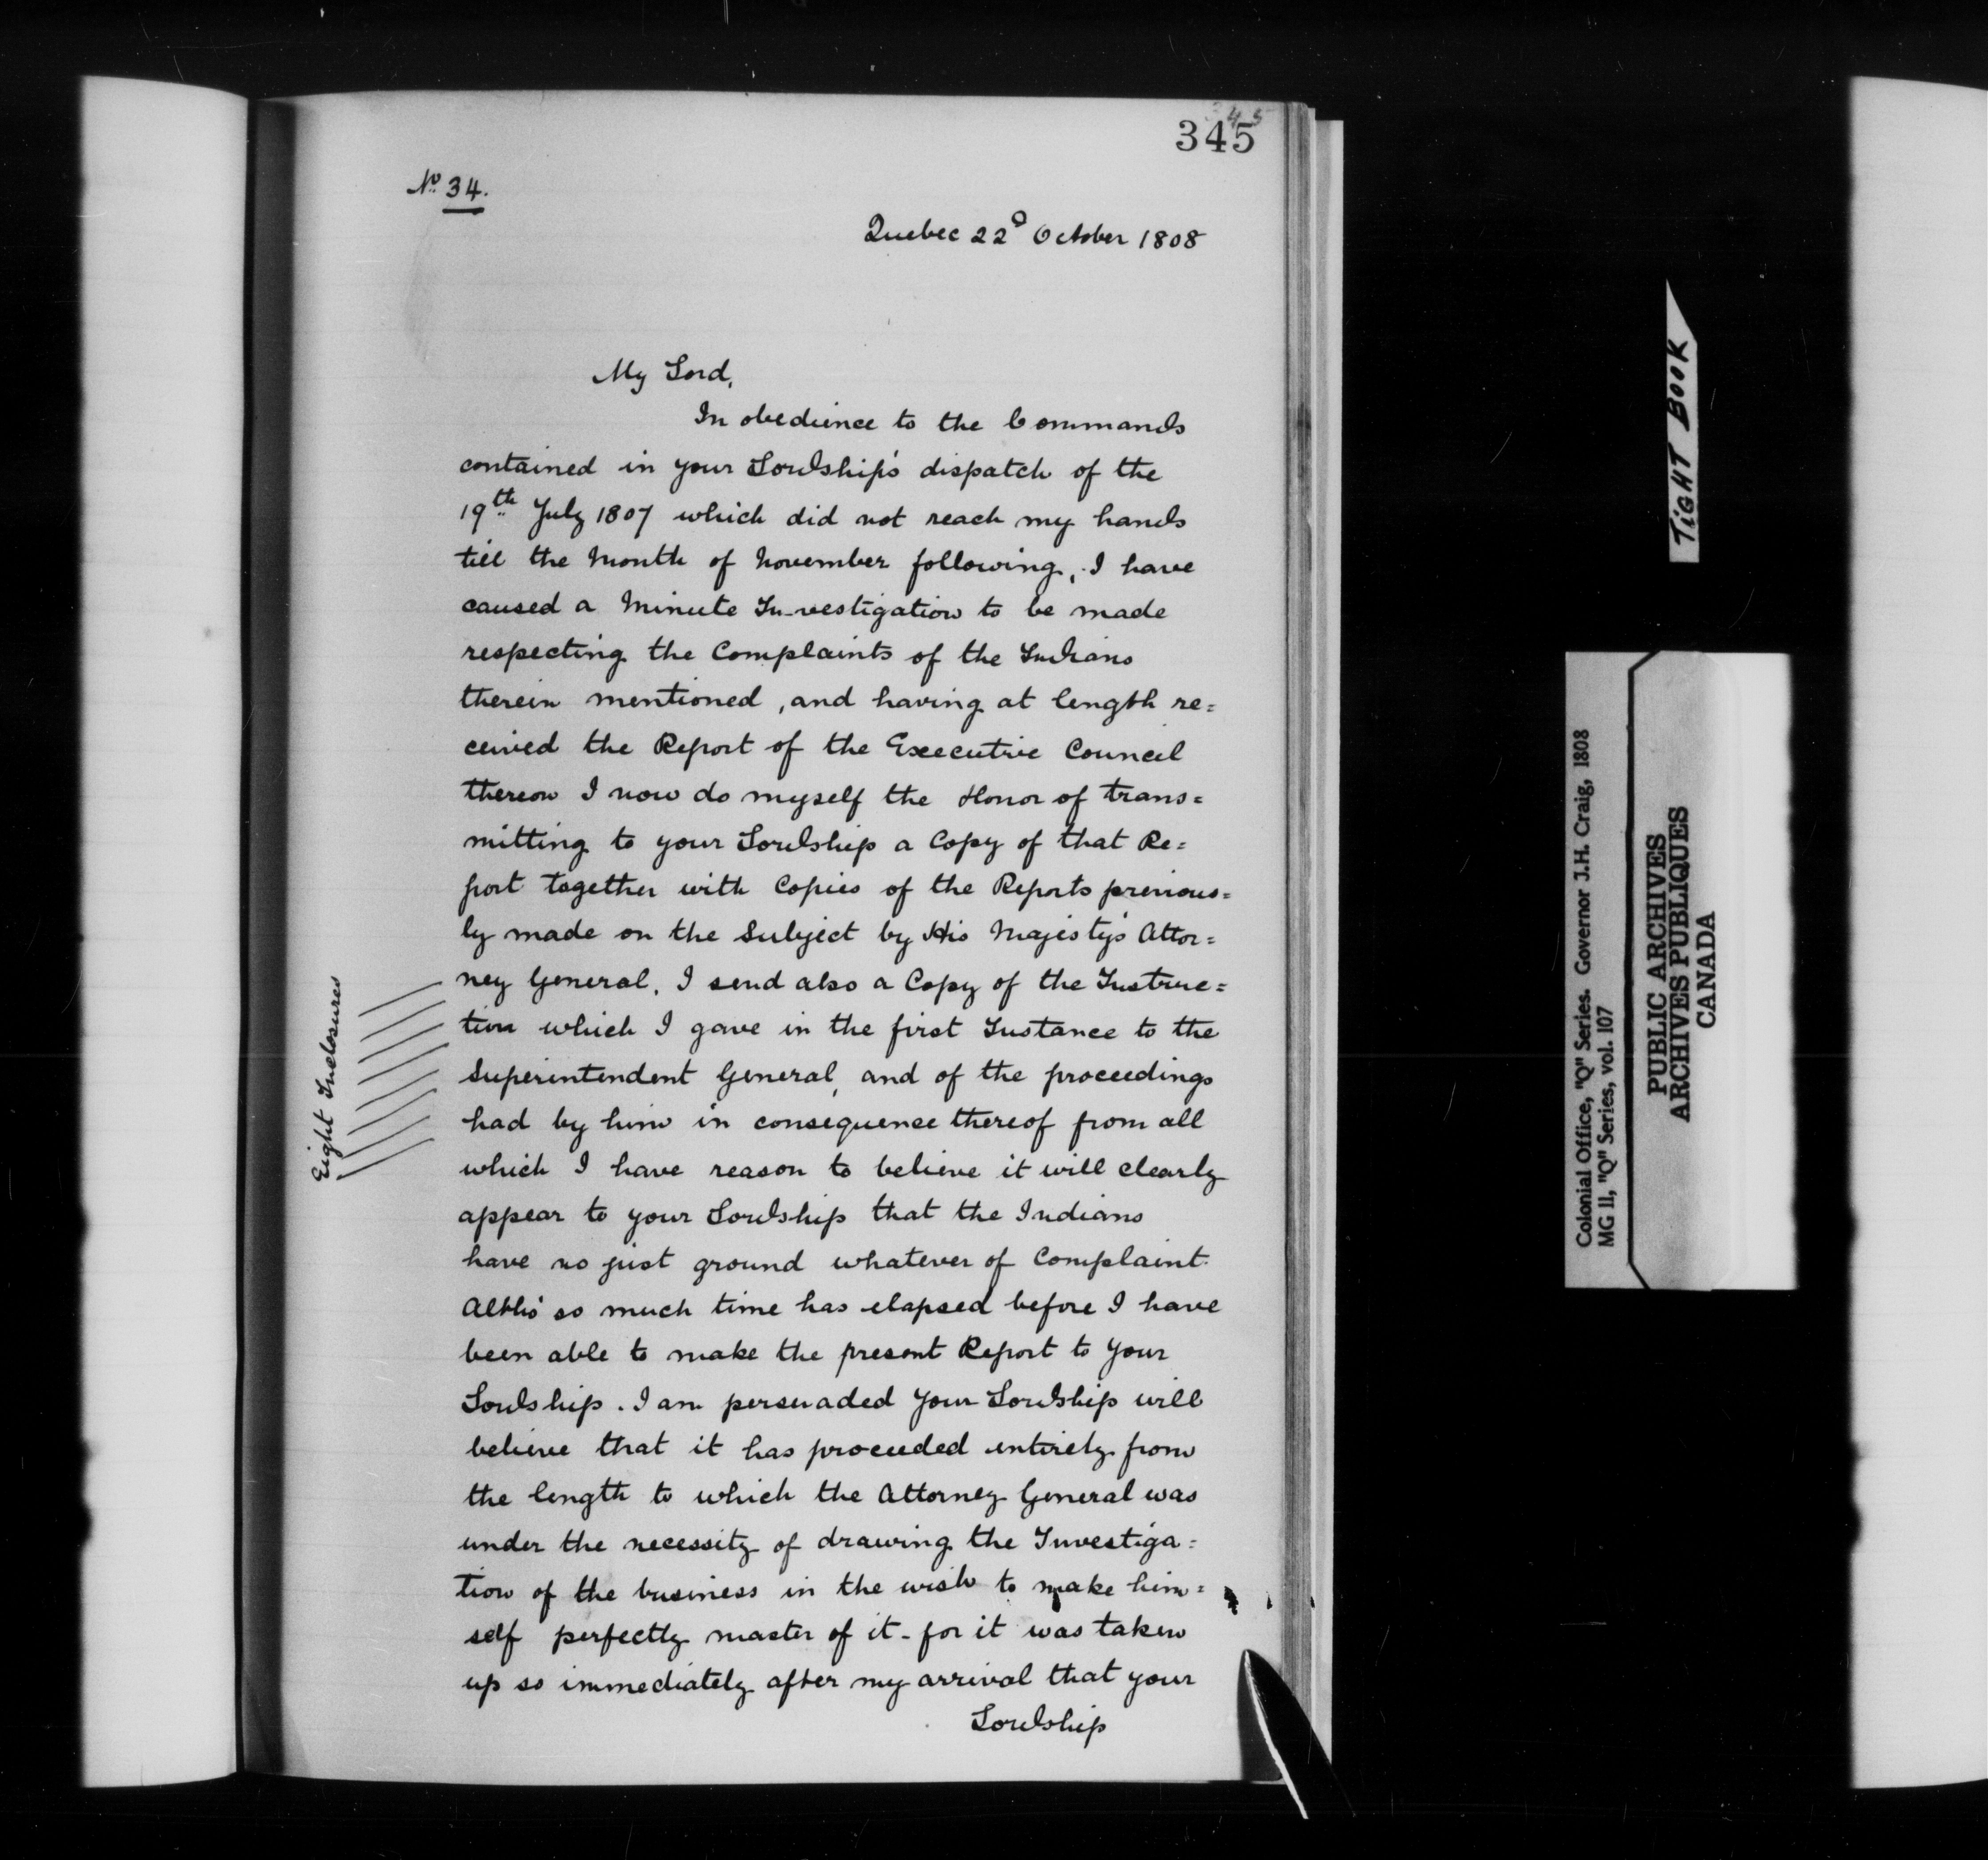 345
345
No. 34.
Quebec 22d October 1808
My Lord,
In obedience to the Commands
contained in your Lordship's dispatch of the
19th July 1807 which did not reach my hands
till the Month of November following, I have
caused a Minute In-vestigation to be made
respecting the Complaints of the Indians
therein mentioned, and having at length re=
ceived the Report of the Executive Council
thereon I now do myself the Honor of trans=
mitting to your Lordship a Copy of that Re=
port together with Copies of the Reports previous=
ly made on the Subject by His Majesty's Attor=
ney General. I send also a Copy of the Instruc=
tion which I gave in the first Instance to the
Superintendent General, and of the proceedings
had by him in consequence thereof from all
which I have reason to believe it will clearly
appear to your Lordship that the Indians
have no just ground whatever of Complaint.
Altho' so much time has elapsed before I have
been able to make the present Report to Your
Lordship. I am persuaded Your Lordship will
believe that it has proceeded entirely from
the length to which the Attorney General was
under the necessity of drawing the Investiga=
tion of the business in the wish to make him=
self perfectly master of it - for it was taken
up so immediately after my arrival that your
Lordship
Eight Inclosures
TIGHT BOOK
Colonial Office, "Q" Series. Governor J.H. Craig, 1808
MG 11, "Q" Series, vol. 107
PUBLIC ARCHIVES
ARCHIVES PUBLIQUES
CANADA